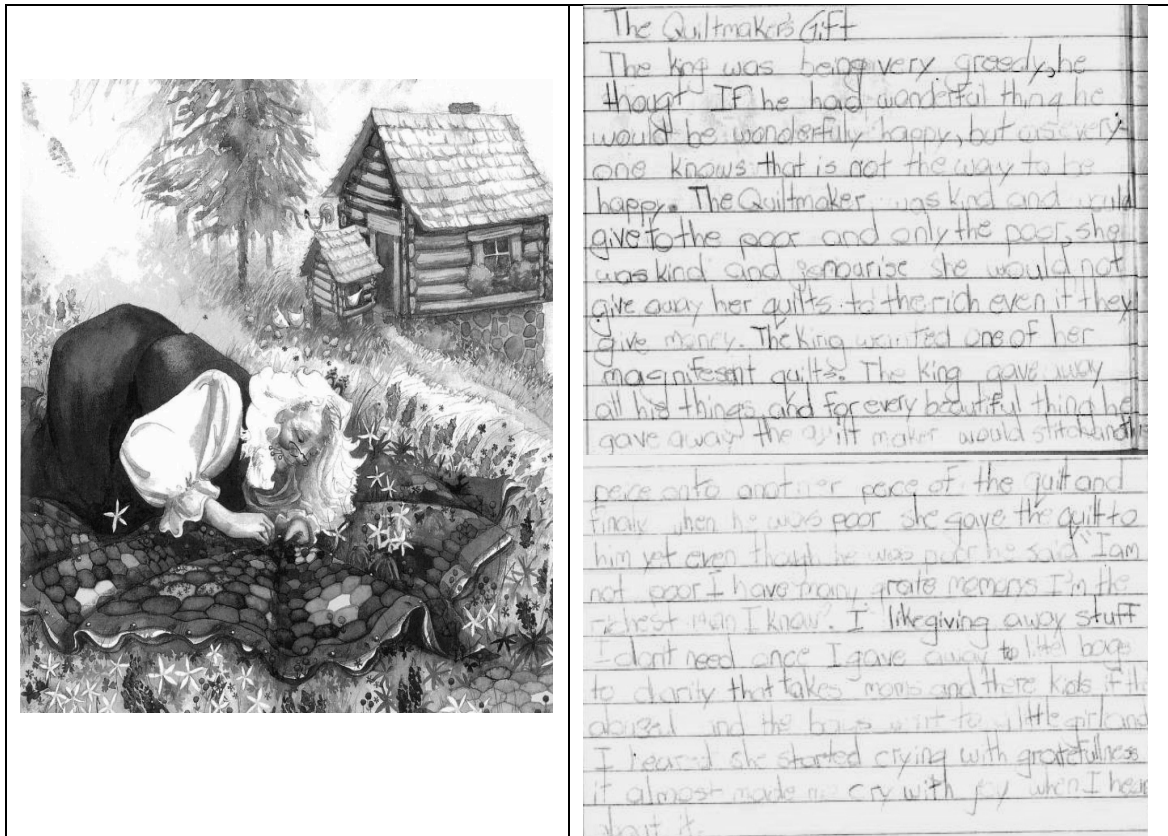 The Quiltmaker's Gift
The king was being very greedy, he
thougt IF he had wonderful thing he
would be wonderfuly happy, but as every
one knows that is not the way to be
happy. The Quiltmaker was kind and would
give to the poor and only the poor, she
was kind and genourise she would not
give away her quilts to the rich even if they
give money. The King wanted one of her
magnifesent quilts. The King gave away
all his things, and for every beautiful thing he
gave away the quilt maker would stitch another
peice onto another peice of the quilt and
finaly when he was poor she gave the quilt to
him yet even though he was poor he said "I am
not poor I have many grate momans I'm the
richest man I know". I like giving away stuff
I dont need once I gave away to littel bags
to charity that takes moms and there kids if the
abused and the bags went to a little girl and
I heared she started crying with gratefullness
it almost made me cry with joy when I hear
about it.